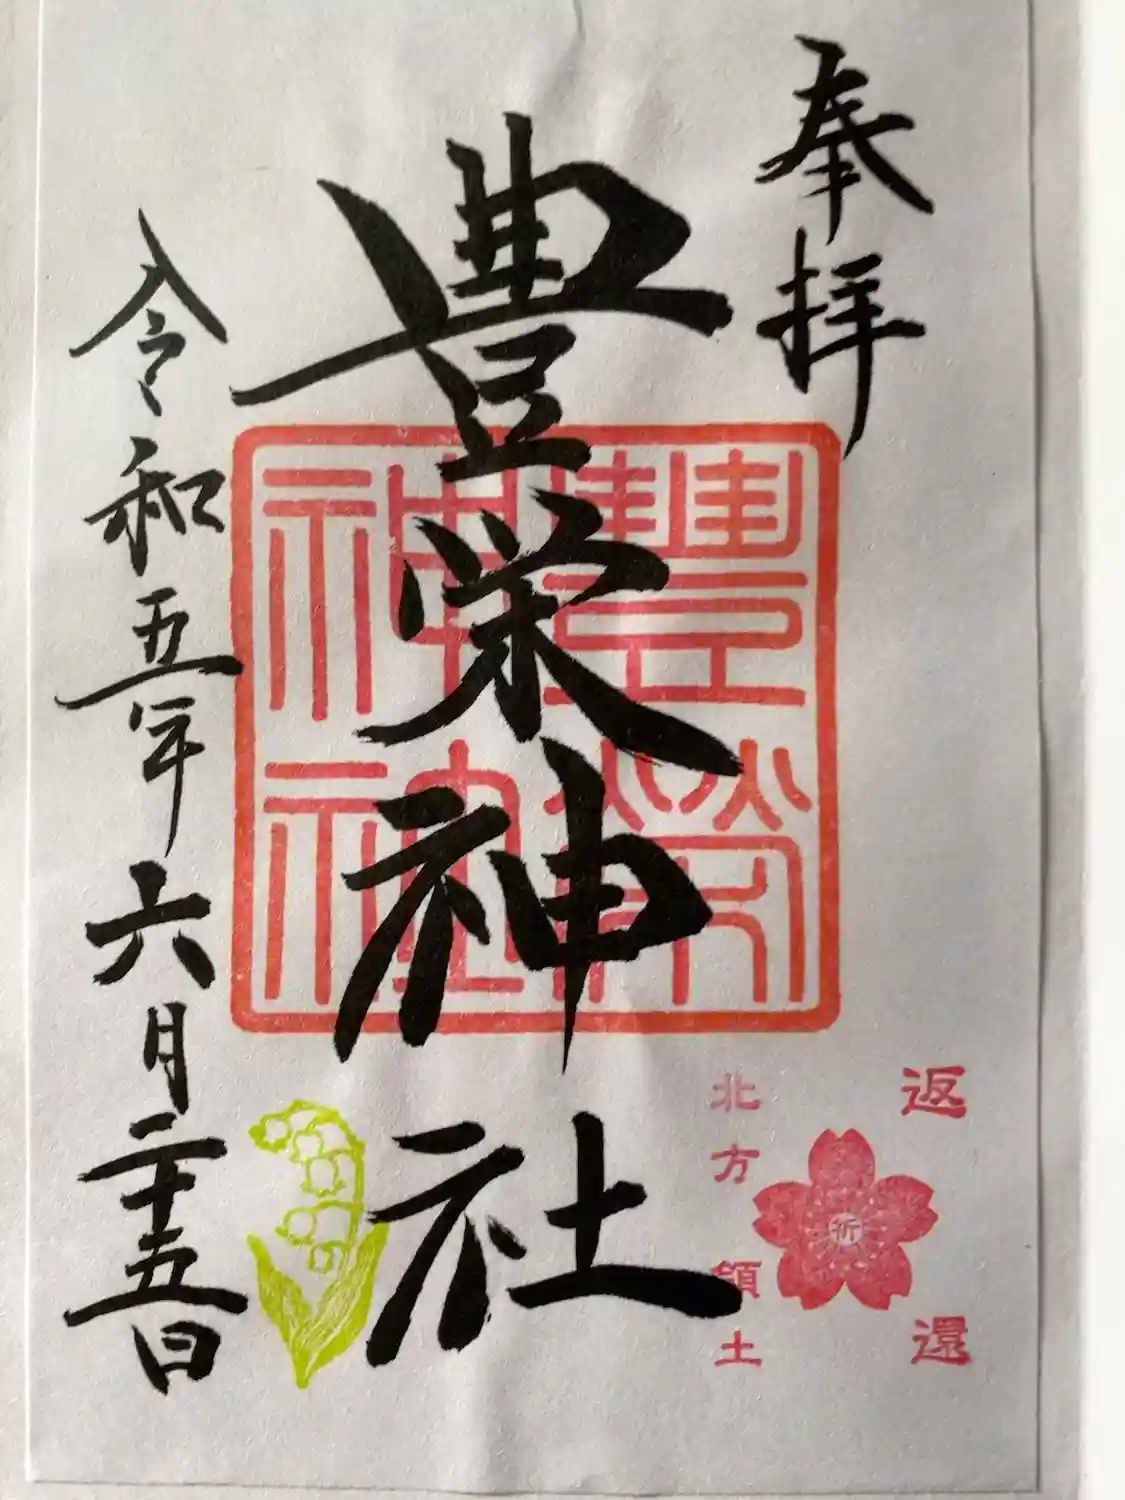 奉拝
豊栄神社
豊榮神社
令和五年六月二十五日
返還
祈
北方領土